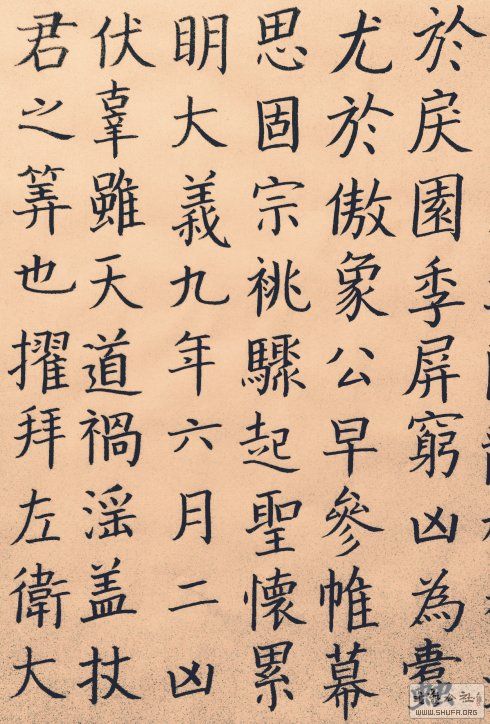 於戾園季屏窮凶為
尤於傲象公早參帷幕
思固宗祧驟起聖懷累
明大義九年六月二凶
伏辜雖天道禍淫盖杖
君之筭也擢拜左衛大
WWW.SHUFA.ORG